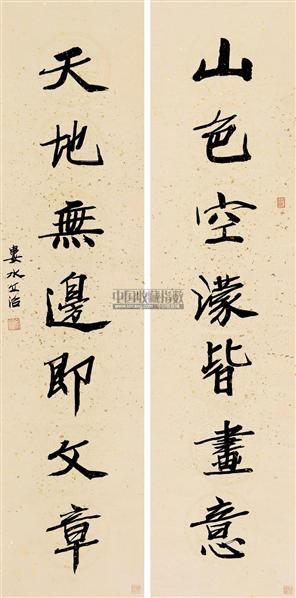 山色空濛皆畫意
天地無邊即文章
婁水
中国收藏指数